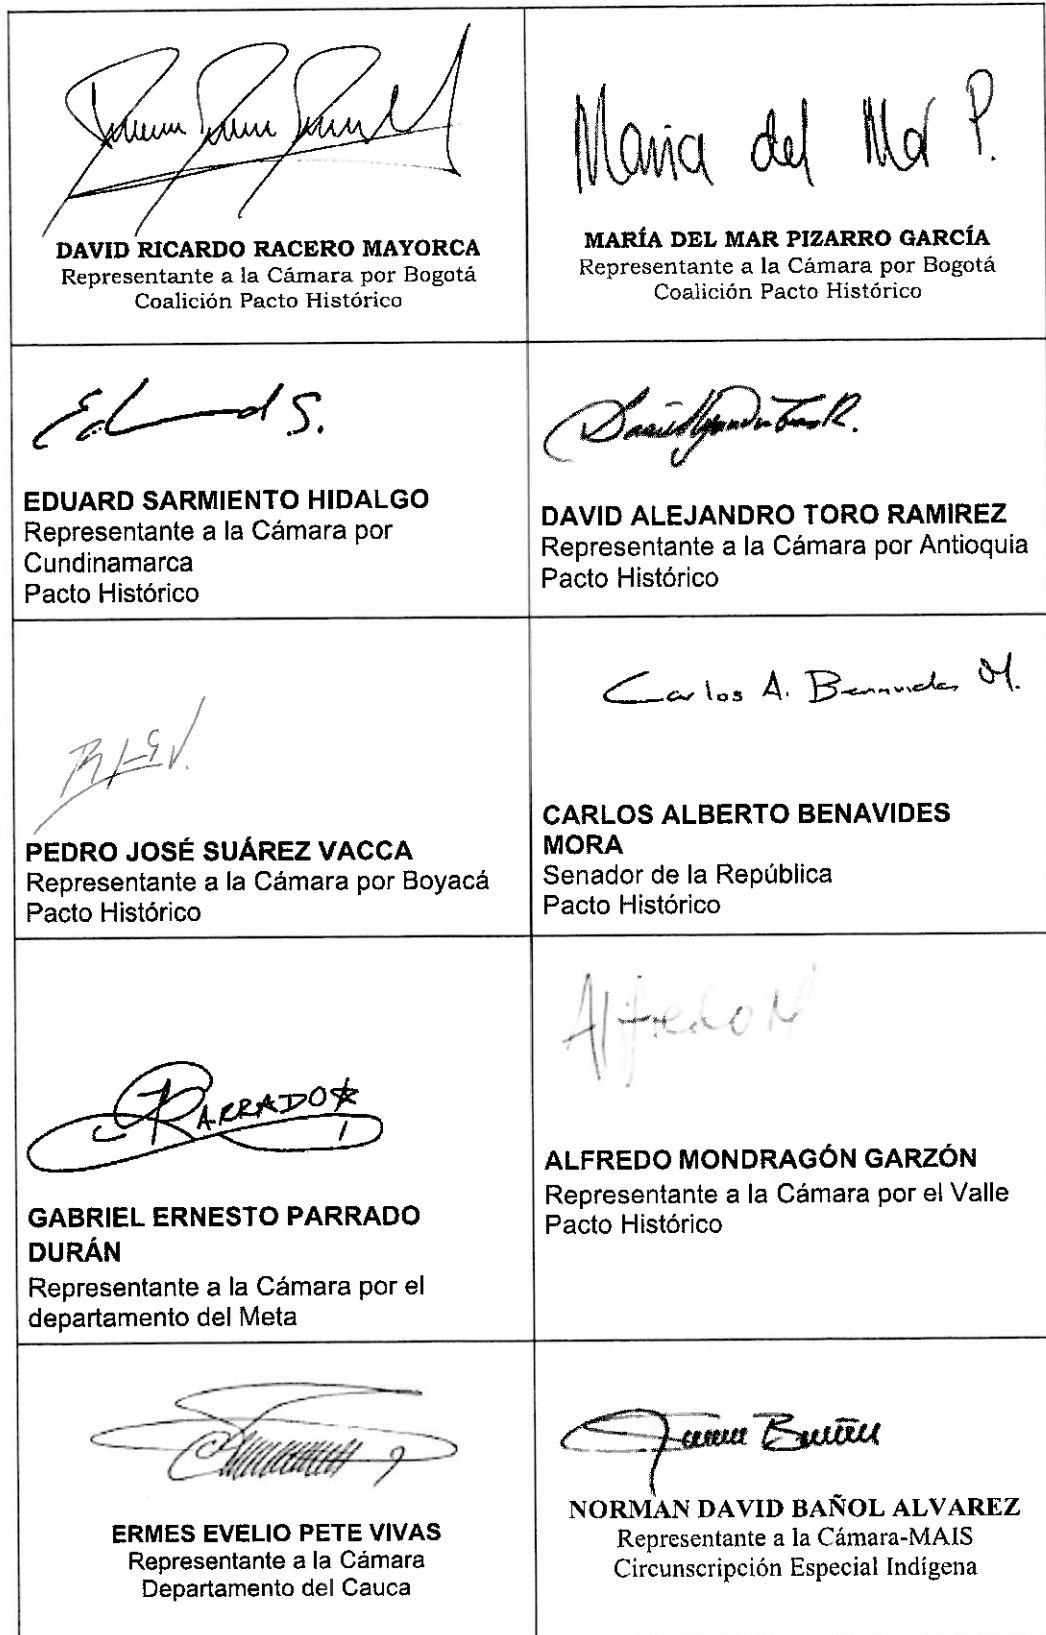 Maria del Mar P.
DAVID RICARDO RACERO MAYORCA
Representante a la Cámara por Bogotá
Coalición Pacto Histórico
MARÍA DEL MAR PIZARRO GARCÍA
Representante a la Cámara por Bogotá
Coalición Pacto Histórico
Eduard S.
EDUARD SARMIENTO HIDALGO
Representante a la Cámara por
Cundinamarca
Pacto Histórico
DAVID ALEJANDRO TORO RAMIREZ
Representante a la Cámara por Antioquia
Pacto Histórico
PEDRO JOSÉ SUÁREZ VACCA
Representante a la Cámara por Boyacá
Pacto Histórico
Carlos A. Benavides M.
CARLOS ALBERTO BENAVIDES
MORA
Senador de la República
Pacto Histórico
PARRADO
GABRIEL ERNESTO PARRADO
DURÁN
Representante a la Cámara por el
departamento del Meta
Alfredo M
ALFREDO MONDRAGÓN GARZÓN
Representante a la Cámara por el Valle
Pacto Histórico
ERMES EVELIO PETE VIVAS
Representante a la Cámara
Departamento del Cauca
NORMAN DAVID BAÑOL ALVAREZ
Representante a la Cámara-MAIS
Circunscripción Especial Indígena